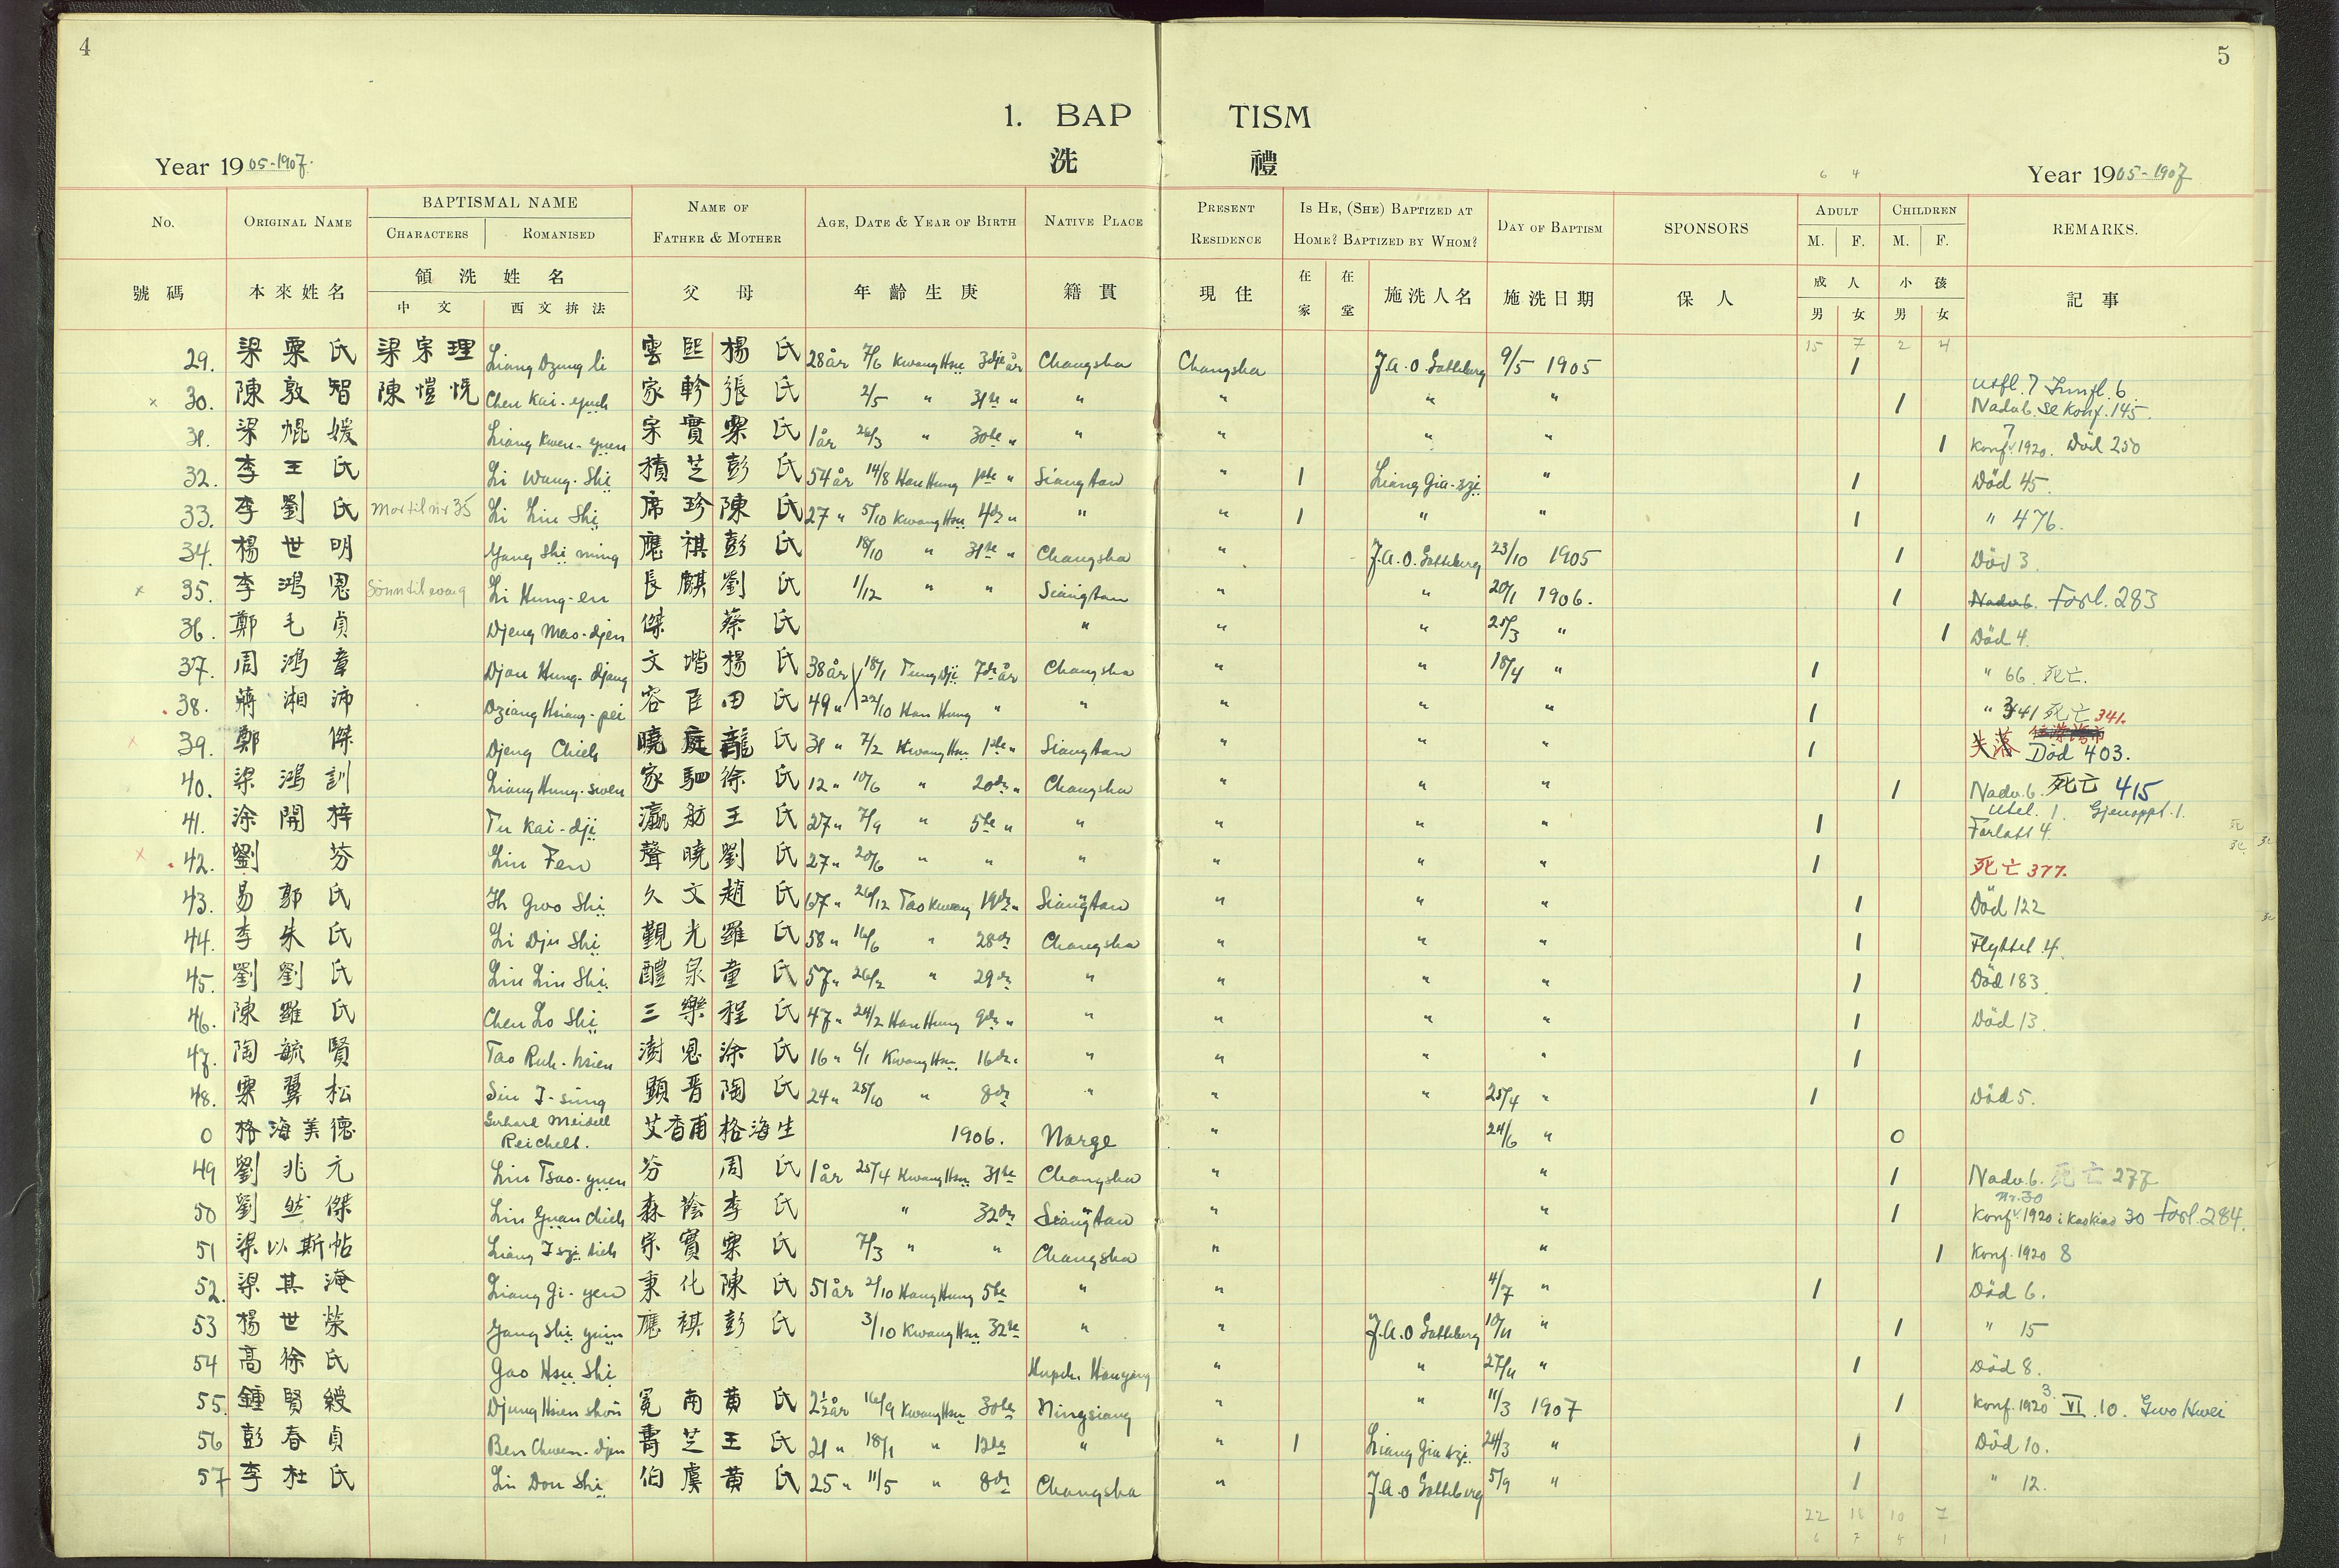 4
5
1. BAP TISM
Year 1905-1907. 洗 禮 Year 1905-1907
6 4
No. ORIGINAL NAME BAPTISMAL NAME CHARACTERS ROMANISED NAME OF FATHER & MOTHER AGE, DATE & YEAR OF BIRTH NATIVE PLACE PRESENT RESIDENCE IS HE, (SHE) BAPTIZED AT HOME? BAPTIZED BY WHOM? DAY OF BAPTISM SPONSORS ADULT M. F. CHILDREN M. F. REMARKS.
號碼 本來姓名 領洗姓名 中文 西文拚法 父母 年齡生庚 籍貫 現住 在家 在堂 施洗人名 施洗日期 保人 成人 男 女 小孩 男 女 記事
15 7 2 4
29. 梁粟氏 梁宗理 Liang Dzung li 雲熙 楊氏 28 år 7/6 Kwang Hsu 3dje år Changsha Changsha J.A.O. Gotteberg 9/5 1905 1
utfl. 7 Innfl. 6
× 30. 陳敦智 陳愷悅 Chen Kai-yueh 家軫 張氏 2/5 " 31te " " " " " 1 Nadv. 6. Se Konf. 145.
31. 梁焜媛 Liang Kwen-yuen 宗實 粟氏 1 år 26/3 " 30te " " " " " 1 Konf. 1920. 7 Död 250
32. 李王氏 Li Wang-Shi 積芝 彭氏 54 år 14/8 Han Hung 1ste " Siangtan " 1 Liang Gia-szi " 1 Död 45.
33. 李劉氏 Mor til nr 35 Li Liu Shi 席珍 陳氏 27 " 5/10 Kwang Hsu 4de " " " 1 " " 1 " 476.
34. 楊世明 Yang Shi ming 應祺 彭氏 18/10 " 31te " Changsha " J.A.O. Gotteberg 23/10 1905 1 Död 3.
× 35. 李鴻恩 Li Hung-en 長麒 劉氏 1/12 " " Siangtan " " 20/1 1906. 1 Nadv. 6. Forl. 283
36. 鄭毛貞 Djeng Mao-djen 傑 蔡氏 " " " 25/3 " 1 Död 4.
37. 周鴻章 Djou Hung-djang 文堦 楊氏 38 år 18/1 Tung Dji 7de år Changsha " " 18/4 " 1 " 66. 死亡.
38. 蔣湘沛 Dziang Hsiang-pei 容臣 田氏 49 " 22/10 Han Hung " " " " " 1 " 341 死亡 341.
× 39. 鄭傑 Djeng Chieh 曉庭 龍氏 31 " 7/2 Kwang Hsu 1ste " Siangtan " " " 1 失落 Död 403.
40. 梁鴻訓 Liang Hung-swen 家駟 徐氏 12 " 10/6 " 20de " Changsha " " " 1 Nadv. 6. 死亡 415
Utel. 1. Gjenoppt. 1.
41. 涂開梓 Tu Kai-dji 瀛舫 王氏 27 " 7/9 " 5te " " " " " 1 Forlatt 4.
× 42. 劉芬 Liu Fen 聲曉 劉氏 27 " 20/6 " " " " " " 1 死亡 377.
43. 易郭氏 Ih Gwo Shi 久文 趙氏 67 " 26/12 Tao Kwang 19de " Siangtan " " " 1 Död 122
44. 李朱氏 Li Dju Shi 觀光 羅氏 58 " 16/6 " 28de Changsha " " " 1 Flyttet 4.
45. 劉劉氏 Liu Liu Shi 醴泉 童氏 57 " 26/2 " 29de " " " " 1 Död 183.
46. 陳羅氏 Chen Lo Shi 三樂 程氏 47 " 24/2 Han Hung 9de " " " " " 1 Död 13.
47. 陶毓賢 Tao Ruh-hsien 澍恩 涂氏 16 " 6/1 Kwang Hsu 16de " " " " " 1
48. 粟翼松 Siu I-sung 顯晋 陶氏 24 " 25/10 " 8de " " " 25/4 " 1 Död 5.
0 格海美德 Gerhard Meidell Reichelt. 艾香甫 格海生 1906. Norge " 24/6 " 0
49 劉兆元 Liu Tsao-yuen 芬 周氏 1 år 25/4 Kwang Hsu 31te Changsha " " 1 Nadv. 6. 死亡 277
Nr. 30
50 劉然傑 Liu Yuan Chieh 森蔭 李氏 " 32de Siangtan " " 1 Konf. 1920 i Kaokiao 30 Forl. 284.
51 梁以斯帖 Liang I szi tieh 宗實 粟氏 7/3 " " Changsha " " 1 Konf. 1920 8
52. 梁其淹 Liang Gi-yen 秉化 陳氏 51 år 2/10 Hang Hung 5te " " 4/7 " 1 Död 6.
53 楊世榮 Yang Shi yuin 應祺 彭氏 3/10 Kwang Hsu 32te " " J.A.O Gotteberg 10/11 " 1 " 15
54 高徐氏 Gao Hsu Shi Hupeh. Hanyang " " 27/11 " 1 Död 8.
55. 鍾賢綬 Djung Hsien shou 冕南 黄氏 2½ år 16/9 Kwang Hsu 30te Ningsiang " " 11/3 1907 1 Konf. 1920 3. VI. 10. Gwo Hwei
56 彭春貞 Ben Chwen-djen 芝 王氏 21 " 18/1 " 12te " " 1 Liang Gia szi 24/3 " 1 Död 10.
57 李杜氏 Lii Dou Shi 伯虞 黄氏 25 " 11/5 " 8de Changsha " J.A.O Gotteberg 5/9 " 1 " 12.
22 18 10 7